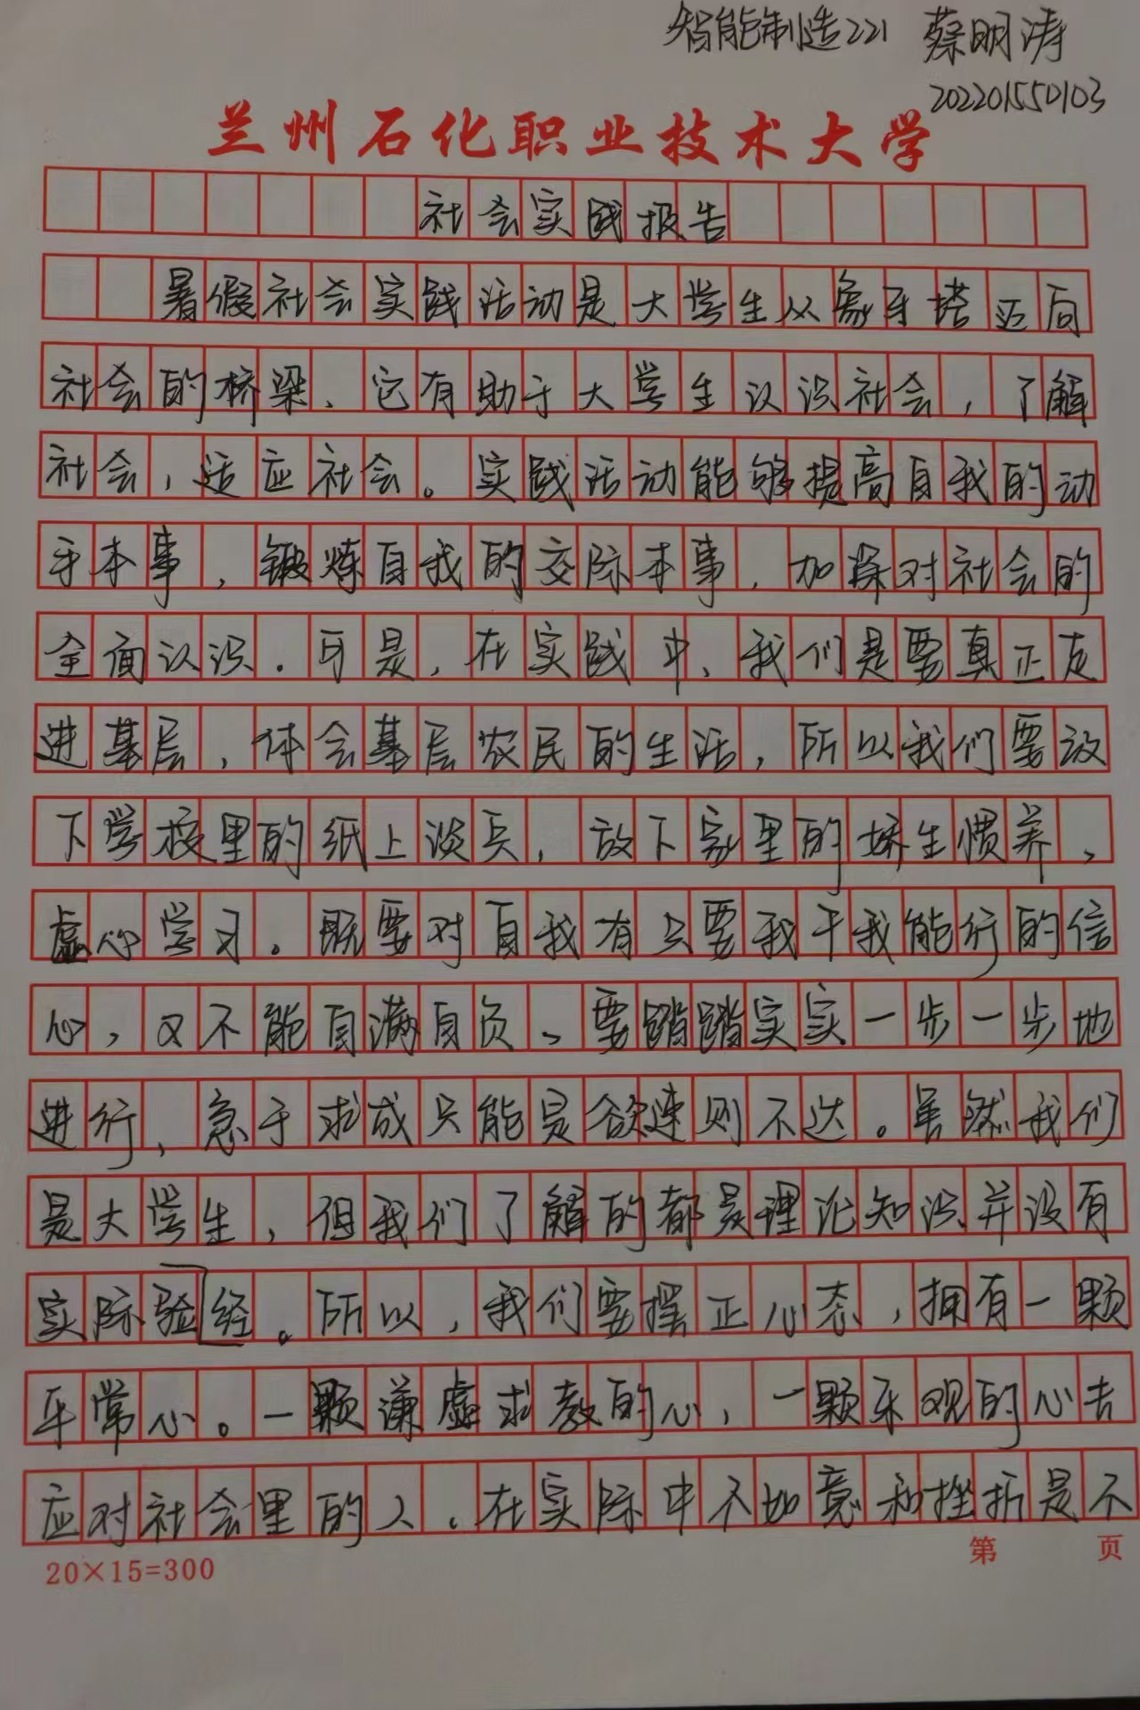 智能制造221 蔡明涛
202201550103
兰州石化职业技术大学
社会实践报告
暑假社会实践活动是大学生从象牙塔迈向
社会的桥梁、它有助于大学生认识社会,了解
社会,适应社会。实践活动能够提高自我的动
手本事,锻炼自我的交际本事,加深对社会的
全面认识.可是,在实践中、我们是要真正走
进基层,体会基层农民的生活,所以我们要放
下学校里的纸上谈兵,放下家里的娇生惯养,
虚心学习。既要对自我有只要我干我能行的信
心,又不能自满自负、要踏踏实实一步一步地
进行,急于求成只能是欲速则不达。虽然我们
是大学生,但我们了解的都是理论知识并没有
实际验经。所以,我们要摆正心态,拥有一颗
平常心。一颗谦虚求教的心,一颗乐观的心去
应对社会里的人.在实际中不如意和挫折是不
20×15=300
第 页